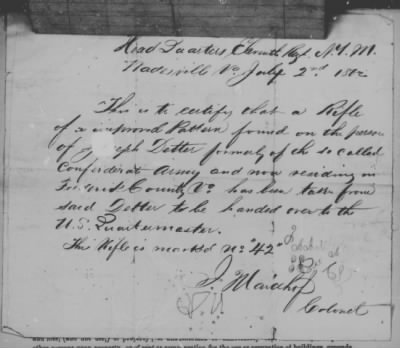 Head Quarters Eleventh Regt. N.Y.M.
Wadesville Va July 2nd. 1862
This is to certify that a Rifle
of a improved Pattern found on the person
of Joseph Detter formerly of the so called
Confederate Army and now residing in
Frederick County Va has been taken from
said Detter to be handed over to the
U.S. Quartermaster.
This Rifle is marked No "42"
J. Maidhof
Colonel